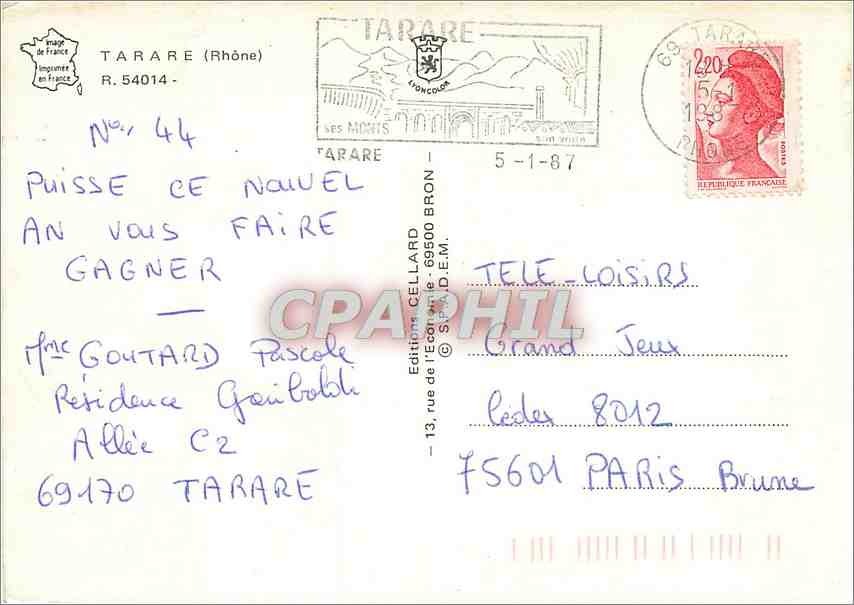 Image
de France
Imprimée
en France
TARARE (Rhône)
R. 54014 -
TARARE
LYONCOLOR
ses MONTS
TARARE
5 -1- 87
69 TARARE
RHONE
2,20
POSTES
REPUBLIQUE FRANCAISE
N° 44
PUISSE CE NOUVEL
AN VOUS FAIRE
GAGNER
Mme GOUTARD Pascale
Résidence Garibaldi
Allée C2
69170 TARARE
Editions CELLARD
- 13, rue de l'Economie - 69500 BRON -
© S.P.A.D.E.M.
CPAPHIL
TELE-LOISIRS
Grand Jeux
Cédex 8012
75601 PARIS Brune